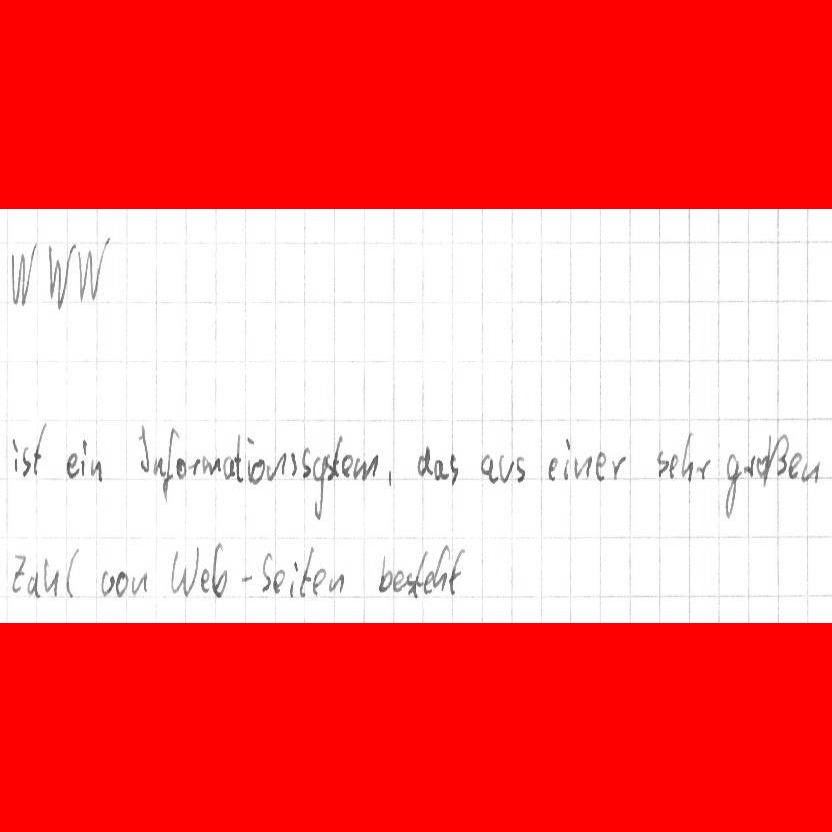 WWW
ist ein Informationssystem, das aus einer sehr großen
Zahl von Web-Seiten besteht